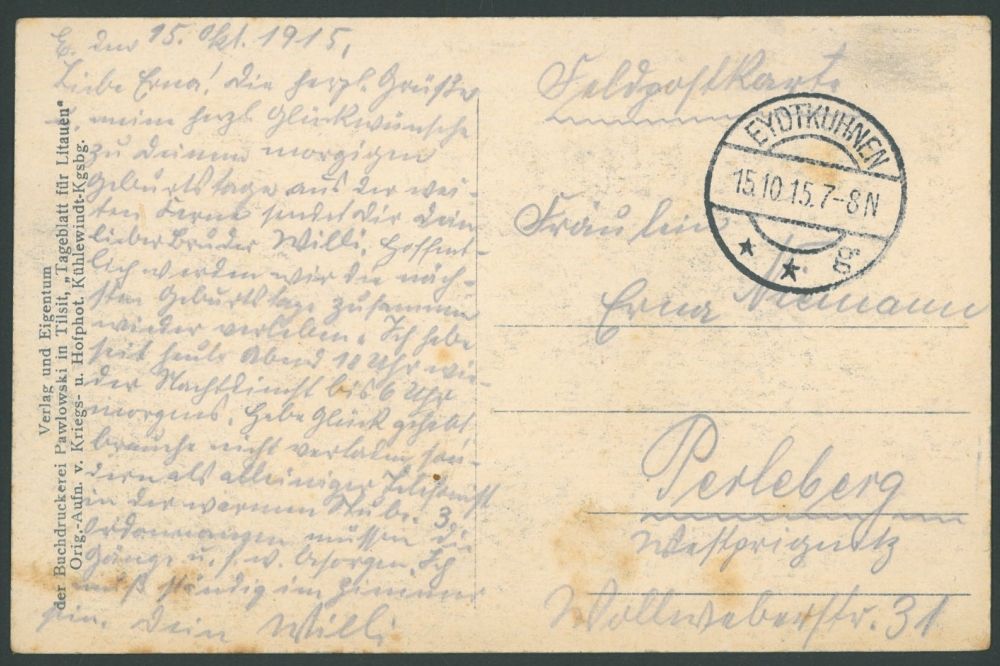 E. den 15. Okt. 1915.
Liebe Erna! Die herzl. Grüße
u. meine herzl. Glückwünsche
zu Deinem morgigen
Geburtstage aus der wei-
ten Ferne sendet Dir Dein
lieber Bruder Willi. Hoffent-
lich werden wir die näch-
sten Geburtstage zusammen
wieder verleben. Ich habe
seit heute Abend 10 Uhr wie-
der Nachtdienst bis 6 Uhr
morgens. Habe Glück gehabt,
brauche nicht son-
dern als alleiniger Telefonist
in der warmen Stube. 3
Ordonnanzen müssen die
Gänge u. s. w. besorgen. Ich
muß ständig im Zimmer
sein. Dein Willi
Verlag und Eigentum
der Buchdruckerei Pawlowski in Tilsit, „Tageblatt für Litauen"
Orig.-Aufn. v. Kriegs- u. Hofphot. Kühlewindt-Kgsbg.
Feldpostkarte
EYDTKUHNEN
15.10.15.7-8N
* * g
Fräulein
Erna Niemann
Perleberg
Westprignitz
Wollweberstr. 31